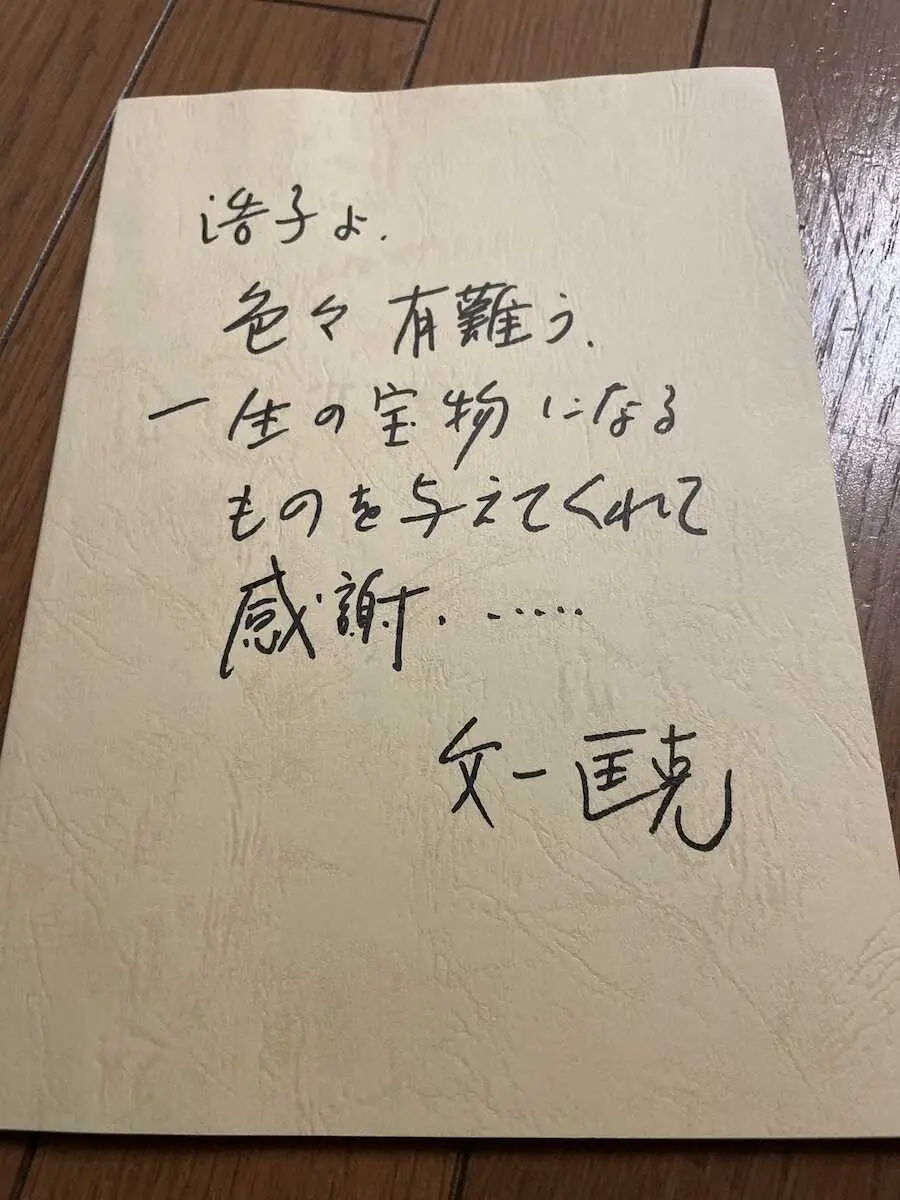 浩子よ.
色々有難う.
一生の宝物になる
ものを与えてくれて
感謝. ・・・・・
文一 匡克